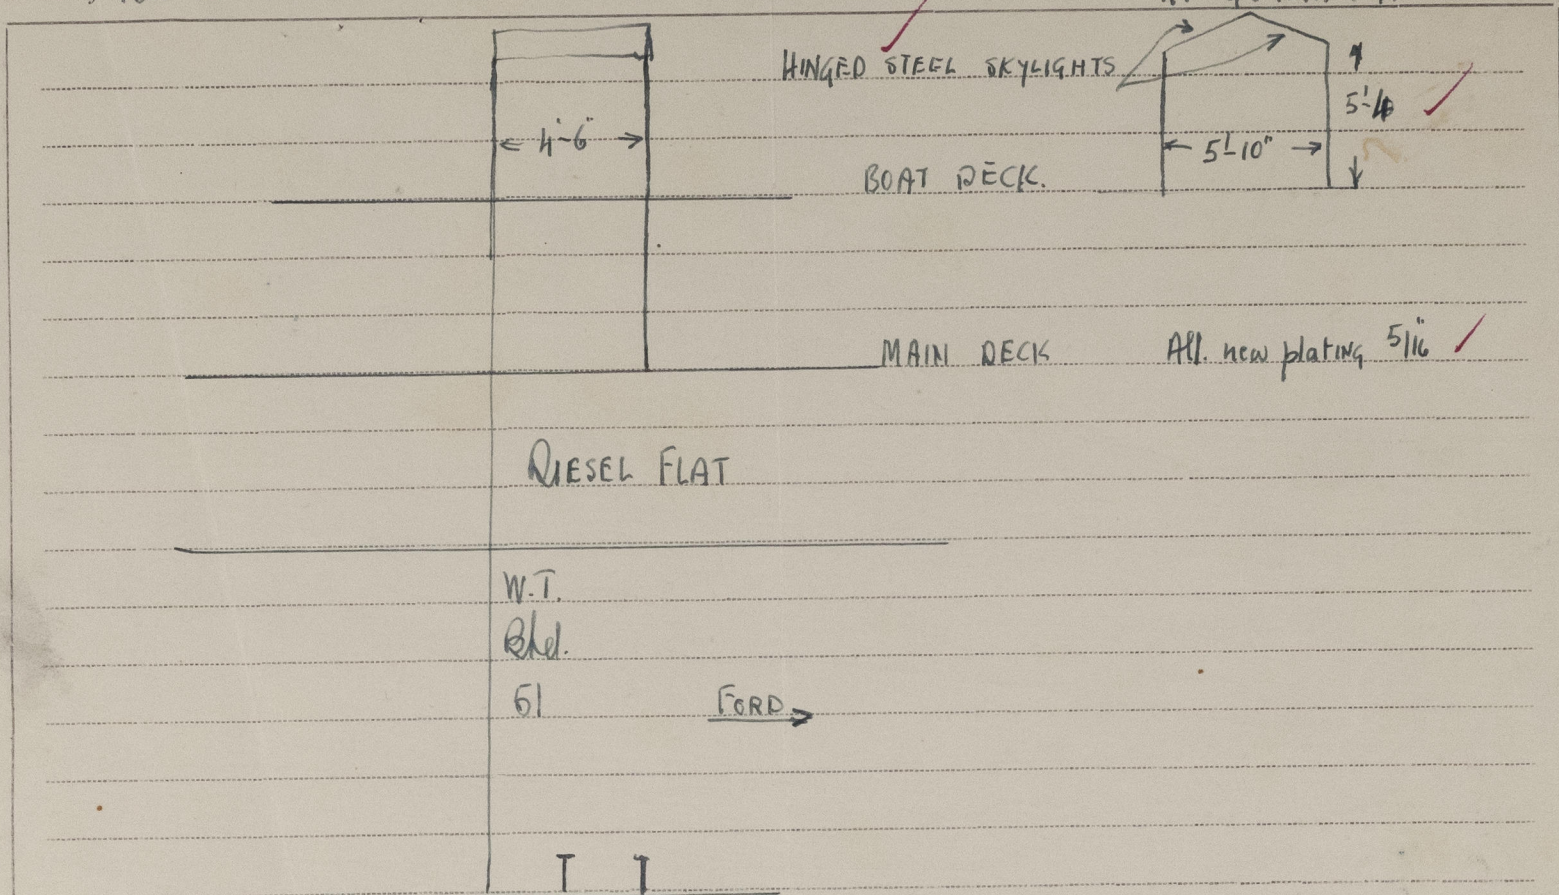 HINGED STEEL SKYLIGHTS
4'-6"
5'-10"
BOAT DECK.
MAIN DECK
All. new plating 5/16"
DIESEL FLAT
W.T.
Bhd.
61
FORD